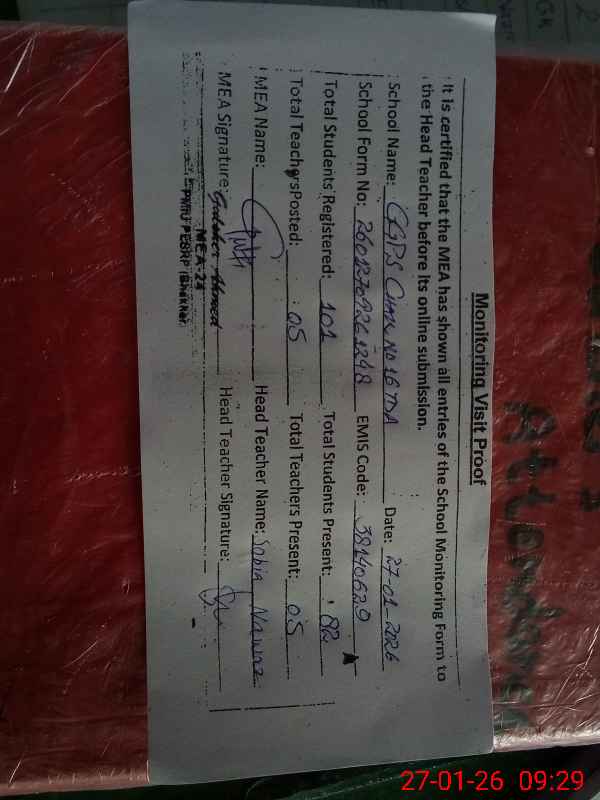 Monitoring Visit Proof
It is certified that the MEA has shown all entries of the School Monitoring Form to
the Head Teacher before its online submission.
School Name: GGPS Chak No 16 TDA Date: 27-01-2026
School Form No: EMIS Code: 38140629
Total Students Registered: 101 Total Students Present: 82
Total Teachers Posted: 05 Total Teachers Present: 05
MEA Name: Head Teacher Name: Sobia Nawaz
MEA Signature: Ahmed Head Teacher Signature:
MEA-24
PMIU PESRP (Bhakkar)
Attendance
27-01-26 09:29